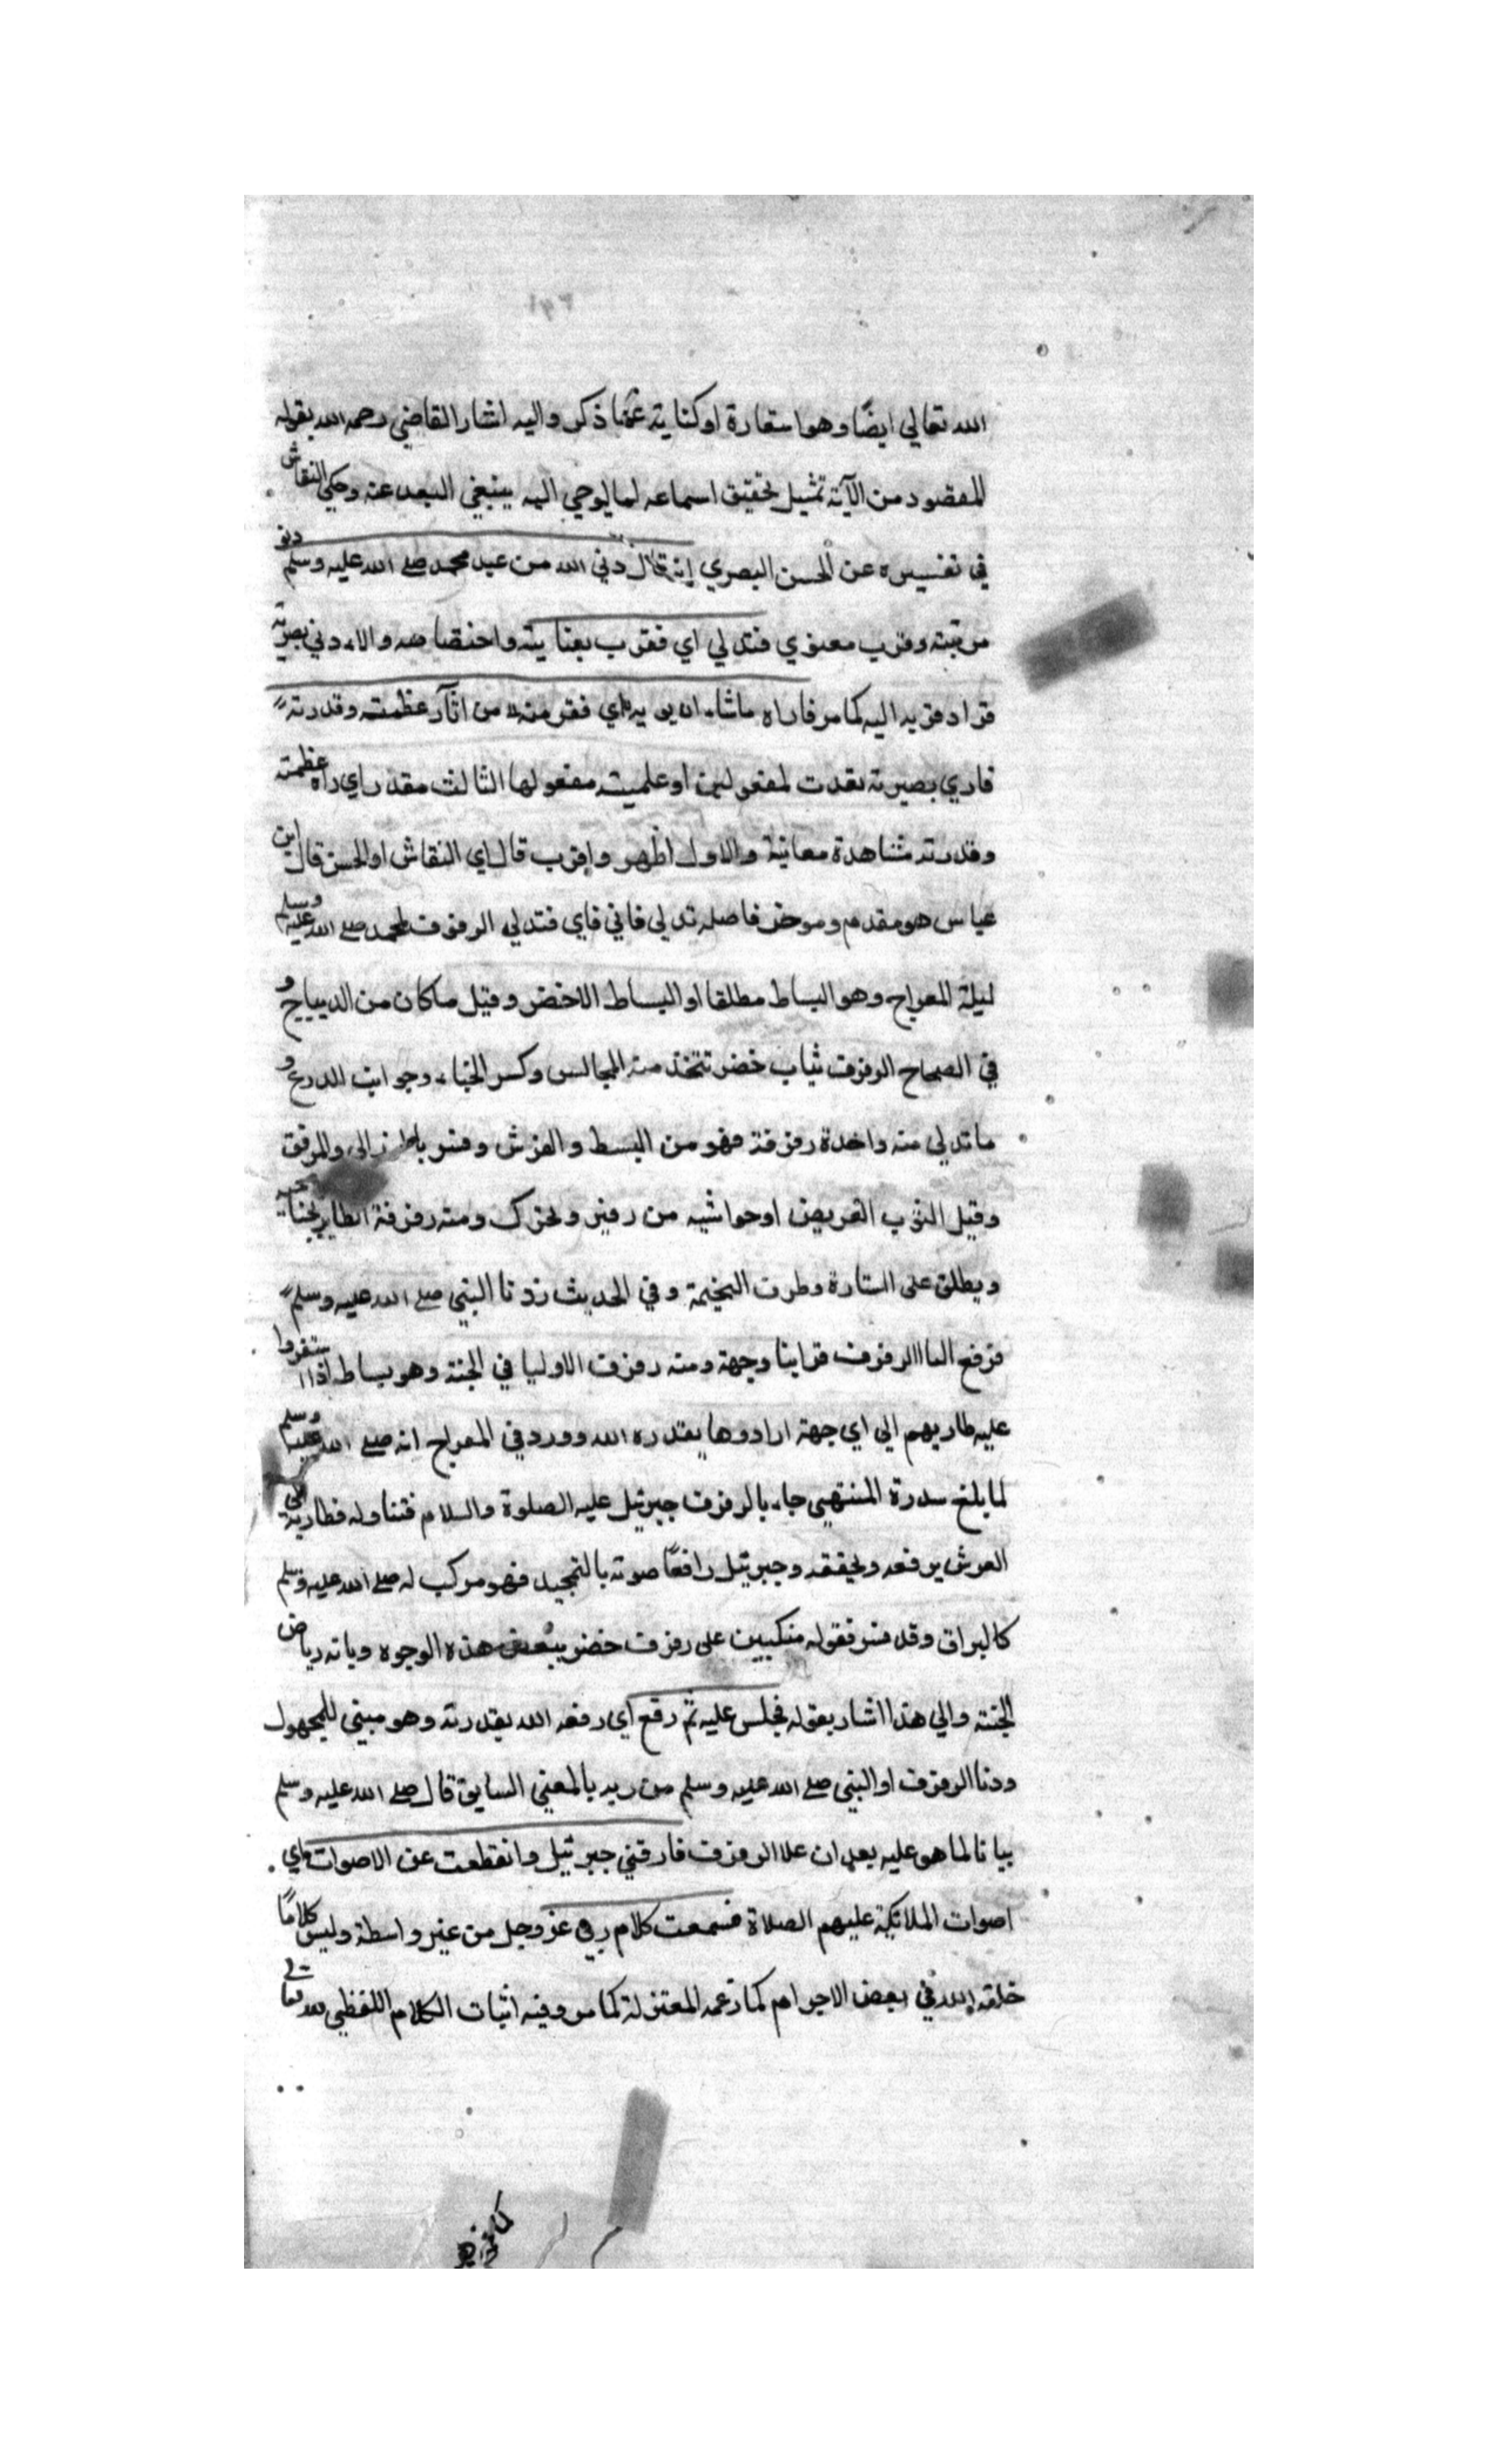 الله تعالي ايضًا وهو استعارة او كناية عما ذكر واليه اشار القاضي رحمه الله بقوله
المقصود من الآية تمثيل تحقيق اسماعه لما يوحي اليه ينبغي البعد عنه وحكي النقاش
في تفسيره عن الحسن البصري انه قال دني الله من عبده محمد صلي الله عليه وسلم دنو
مرتبة وقرب معنوي فتدلي اي فقرب بعنايته واختصاصه والا دني بصريه
فزاد قربه اليه كما مر فاراه ماشاء ان يريه اي فقر منه من اثار عظمته وقدرته
فاري بصيرته تعدت لمفعولين او علمية مفعولها الثالث مقدر اي راه عظمته
وقدرته مشاهدة معاينة والاول اظهر واقرب قال اي النقاش او الحسن قال ابن
عباس هو مقدم وموخر فاصله تدلي فاني فاي فتدلي الرفرف لمحمد صلي الله عليه وسلم
ليلة المعراج وهو البساط مطلقا او البساط الاخضر وقيل ماكان من الديباج و
في الصحاح الرفرف ثياب خضر تتخذ منه المجالس وكسر الخباء وجوانب الدرع و
ماتدلي منه واحدة رفرفة فهو من البسط والفرش وفسر بالطرز الي والمرفق
وقيل الثوب العريض او حواشيه من رفير وتحرك ومنه رفرفة الطاير بجناحيه
ويطلق علي الستارة وطرف الخيمة وفي الحديث زونا النبي صلي الله عليه وسلم
فرفع العا الرفرف فراينا وجهة ومنه رفرف الاوليا في الجنة وهو بساط اذا استقروا
عليه طار بهم الي اي جهة ارادوها بقدره الله وورد في المعراج انه صلي الله عليه وسلم
لما بلغ سدرة المنتهي جاء بالرفرف جبرئيل عليه الصلوة والسلام فتناوله فطار به الي
العرش يرفعه ويخفقه وجبرئيل رافعًا صوته بالتمجيد فهو مركب له صلي الله عليه وسلم
كالبراق وقد فسر فقوله متكيين علي رفرف خضر ببعض هذه الوجوه وبانه رياض
الجنة والي هذا اشار بقوله فجلس عليه ثم رفع اي رفعه الله بقدرته وهو مبني للمجهول
ودنا الرفرف او النبي صلي الله عليه وسلم من ربه بالمعني السابق قال صلي الله عليه وسلم
بيانا لما هو عليه بعد ان علا الرفرف فارقني جبرئيل وانقطعت عن الاصوات اي
اصوات الملائكة عليهم الصلاة فسمعت كلام ربي عز وجل من غير واسطة وليس كلامًا
خلقه الله في بعض الاجرام كما زعمه المعتزلة كما مر وفيه اثبات الكلام اللفظي لله تعالي